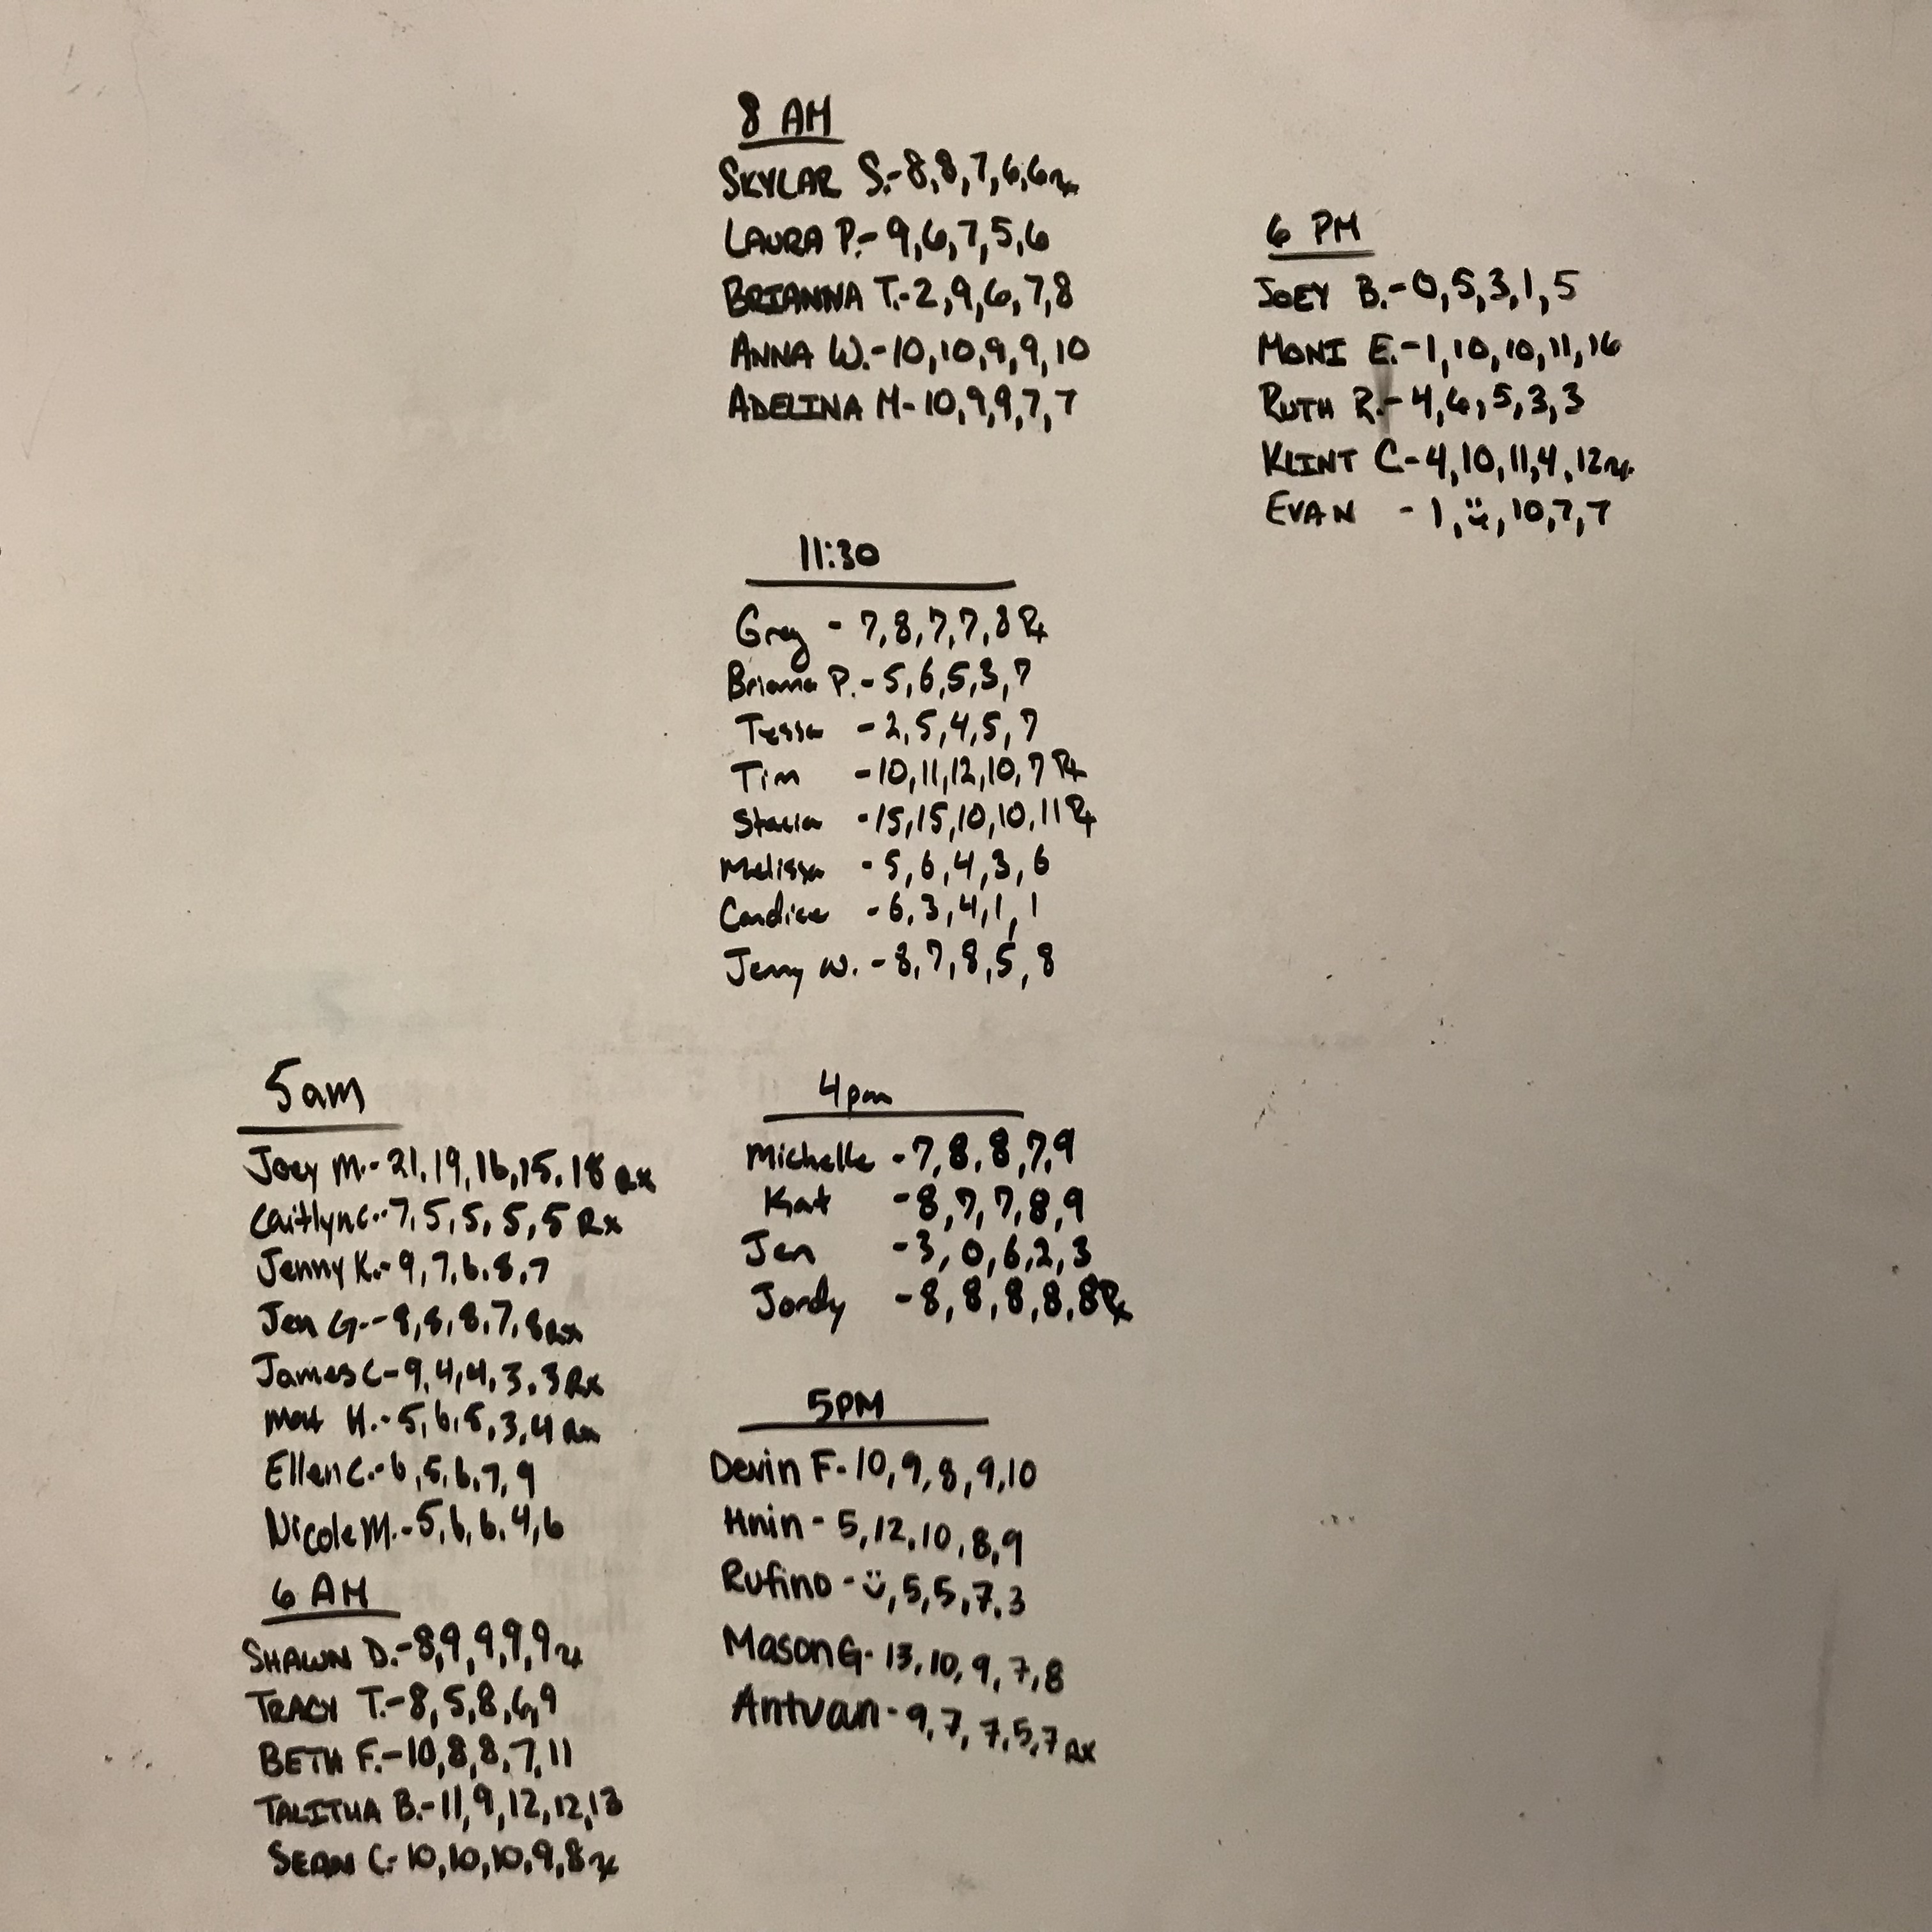 8 AM
SKYLAR S.-8,8,7,6,6rx
LAURA P.-9,6,7,5,6
BRIANNA T.-2,9,6,7,8
ANNA W.-10,10,9,9,10
ADELINA M-10,9,9,7,7
6 PM
JOEY B.-0,5,3,1,5
MONI E.-1,10,10,11,16
RUTH R.-4,6,5,3,3
KLINT C-4,10,11,4,12rx
EVAN -1,:),10,7,7
11:30
Greg - 7,8,7,7,8 Rx
Brianna P. - 5,6,5,3,7
Tessa - 2,5,4,5,7
Tim -10,11,12,10,7 Rx
Stacia -15,15,10,10,11 Rx
Melissa - 5,6,4,3,6
Candice - 6,3,4,1,1
Jenny W. - 8,7,8,5,8
5am
Joey M.-21,19,16,15,18 Rx
Caitlyn C.-7,5,5,5,5 Rx
Jenny K.-9,7,6,8,7
Jen G.-8,8,8,7,8 Rx
James C-9,4,4,3,3 Rx
Matt H.-5,6,5,3,4 Rx
Ellen C.-6,5,6,7,9
Nicole M.-5,6,6,4,6
6 AM
SHAWN D.-8,9,9,9,9rx
TRACY T.-8,5,8,6,9
BETH F.-10,8,8,7,11
TALITHA B.-11,9,12,12,13
SEAN C-10,10,10,9,8rx
4pm
Michelle -7,8,8,7,9
Kat -8,7,7,8,9
Jen -3,0,6,2,3
Jordy -8,8,8,8,8 Rx
5PM
Devin F-10,9,8,9,10
Hnin - 5,12,10,8,9
Rufino - :),5,5,7,3
Mason G- 13,10,9,7,8
Antvan - 9,7,7,5,7 Rx